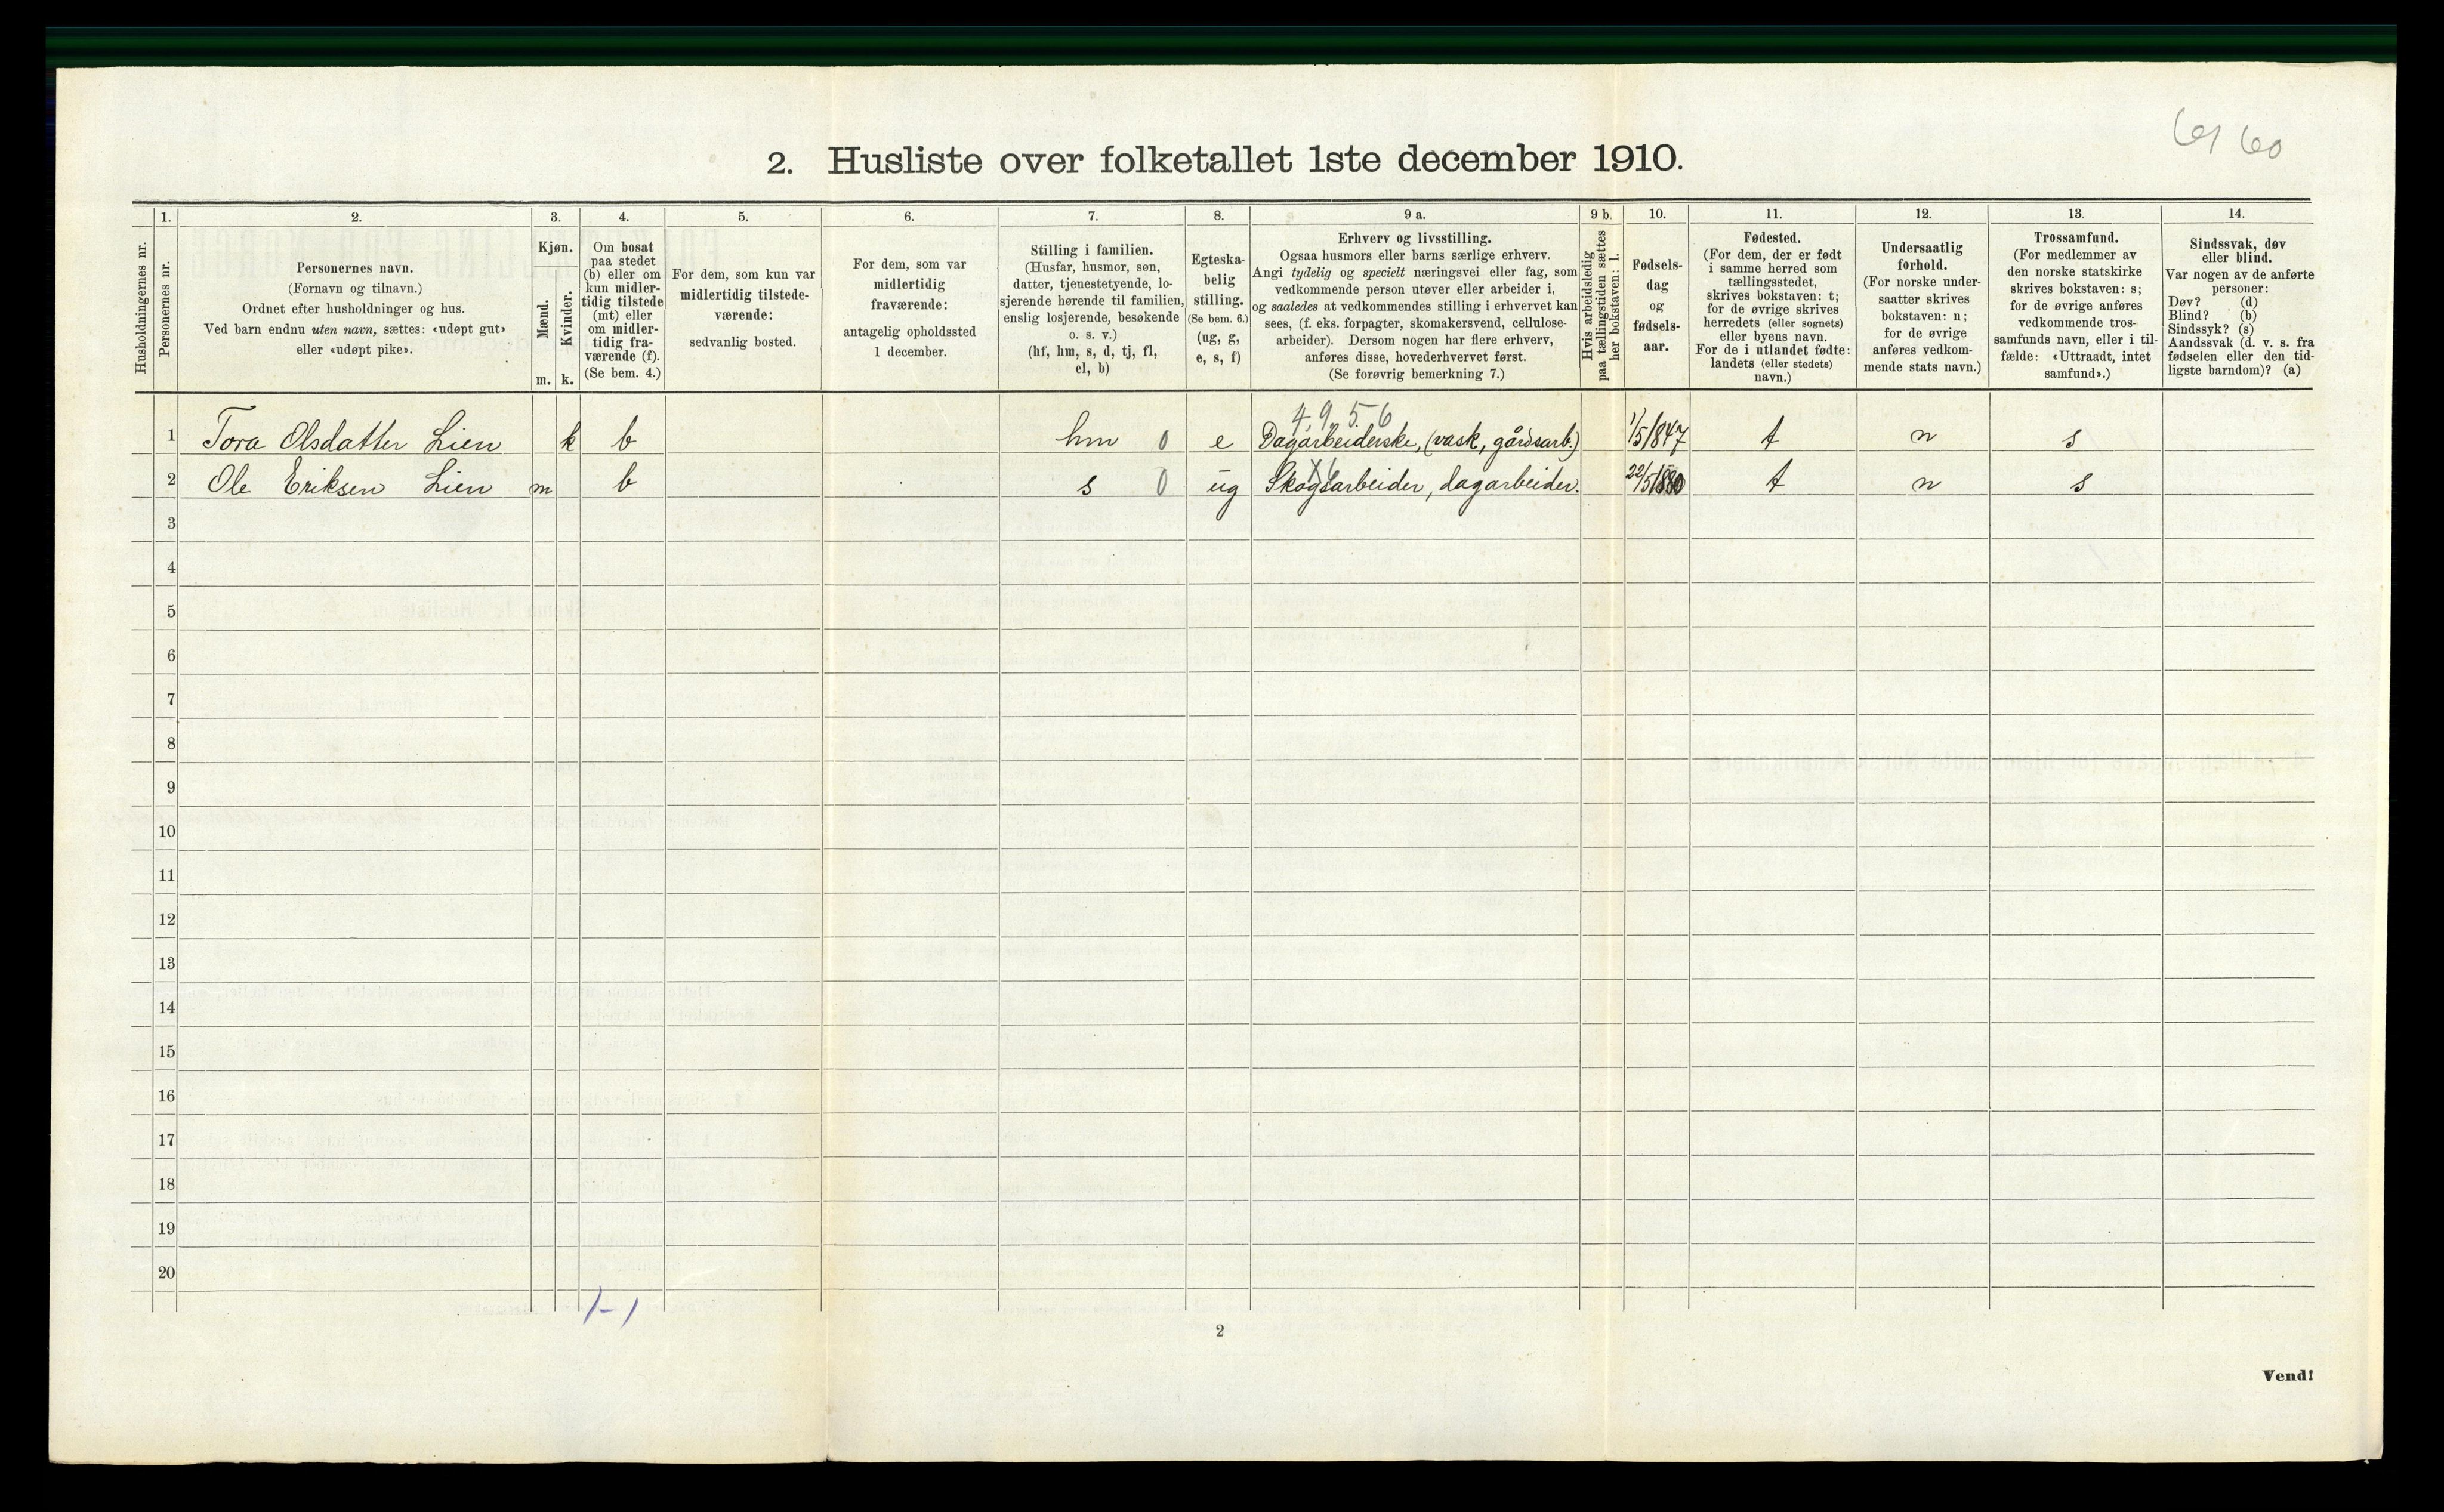 61 60
2. Husliste over folketallet 1ste december 1910.
Husholdningernes nr.
1.
Personernes nr.
2.
Personernes navn.
(Fornavn og tilnavn.)
Ordnet efter husholdninger og hus.
Ved barn endnu uten navn, sættes: «udøpt gut»
eller «udøpt pike».
3.
Kjøn.
Mænd.
Kvinder.
m. k.
4.
Om bosat
paa stedet
(b) eller om
kun midler-
tidig tilstede
(mt) eller
om midler-
tidig fra-
værende (f).
(Se bem. 4.)
5.
For dem, som kun var
midlertidig tilstede-
værende:
sedvanlig bosted.
6.
For dem, som var
midlertidig
fraværende:
antagelig opholdssted
1 december.
7.
Stilling i familien.
(Husfar, husmor, søn,
datter, tjenestetyende, lo-
sjerende hørende til familien,
enslig losjerende, besøkende
o. s. v.)
(hf, hm, s, d, tj, fl,
el, b)
8.
Egteska-
belig
stilling.
(Se bem. 6.)
(ug, g,
e, s, f)
9 a.
Erhverv og livsstilling.
Ogsaa husmors eller barns særlige erhverv.
Angi tydelig og specielt næringsvei eller fag, som
vedkommende person utøver eller arbeider i,
og saaledes at vedkommendes stilling i erhvervet kan
sees, (f. eks. forpagter, skomakersvend, cellulose-
arbeider). Dersom nogen har flere erhverv,
anføres disse, hovederhvervet først.
(Se forøvrig bemerkning 7.)
9 b.
Hvis arbeidsledig
paa tællingstiden sættes
her bokstaven: l.
10.
Fødsels-
dag
og
fødsels-
aar.
11.
Fødested.
(For dem, der er født
i samme herred som
tællingsstedet,
skrives bokstaven: t;
for de øvrige skrives
herredets (eller sognets)
eller byens navn.
For de i utlandet fødte:
landets (eller stedets)
navn.)
12.
Undersaatlig
forhold.
(For norske under-
saatter skrives
bokstaven: n;
for de øvrige
anføres vedkom-
mende stats navn.)
13.
Trossamfund.
(For medlemmer av
den norske statskirke
skrives bokstaven: s;
for de øvrige anføres
vedkommende tros-
samfunds navn, eller i til-
fælde: «Uttraadt, intet
samfund».)
14.
Sindssvak, døv
eller blind.
Var nogen av de anførte
personer:
Døv? (d)
Blind? (b)
Sindssyk? (s)
Aandssvak (d. v. s. fra
fødselen eller den tid-
ligste barndom)? (a)
4,9,5.6
1 Tora Olsdatter Lien k b hm 0 e Dagarbeiderske, (vask, gårdsarb.) 1/5/847 t n s
2 Ole Eriksen Lien m b s 0 ug Skogsarbeider, dagarbeider. 22/5/880 t n s
3
4
5
6
7
8
9
10
11
12
13
14
15
16
17
18
19
20
1-1
2
Vend!